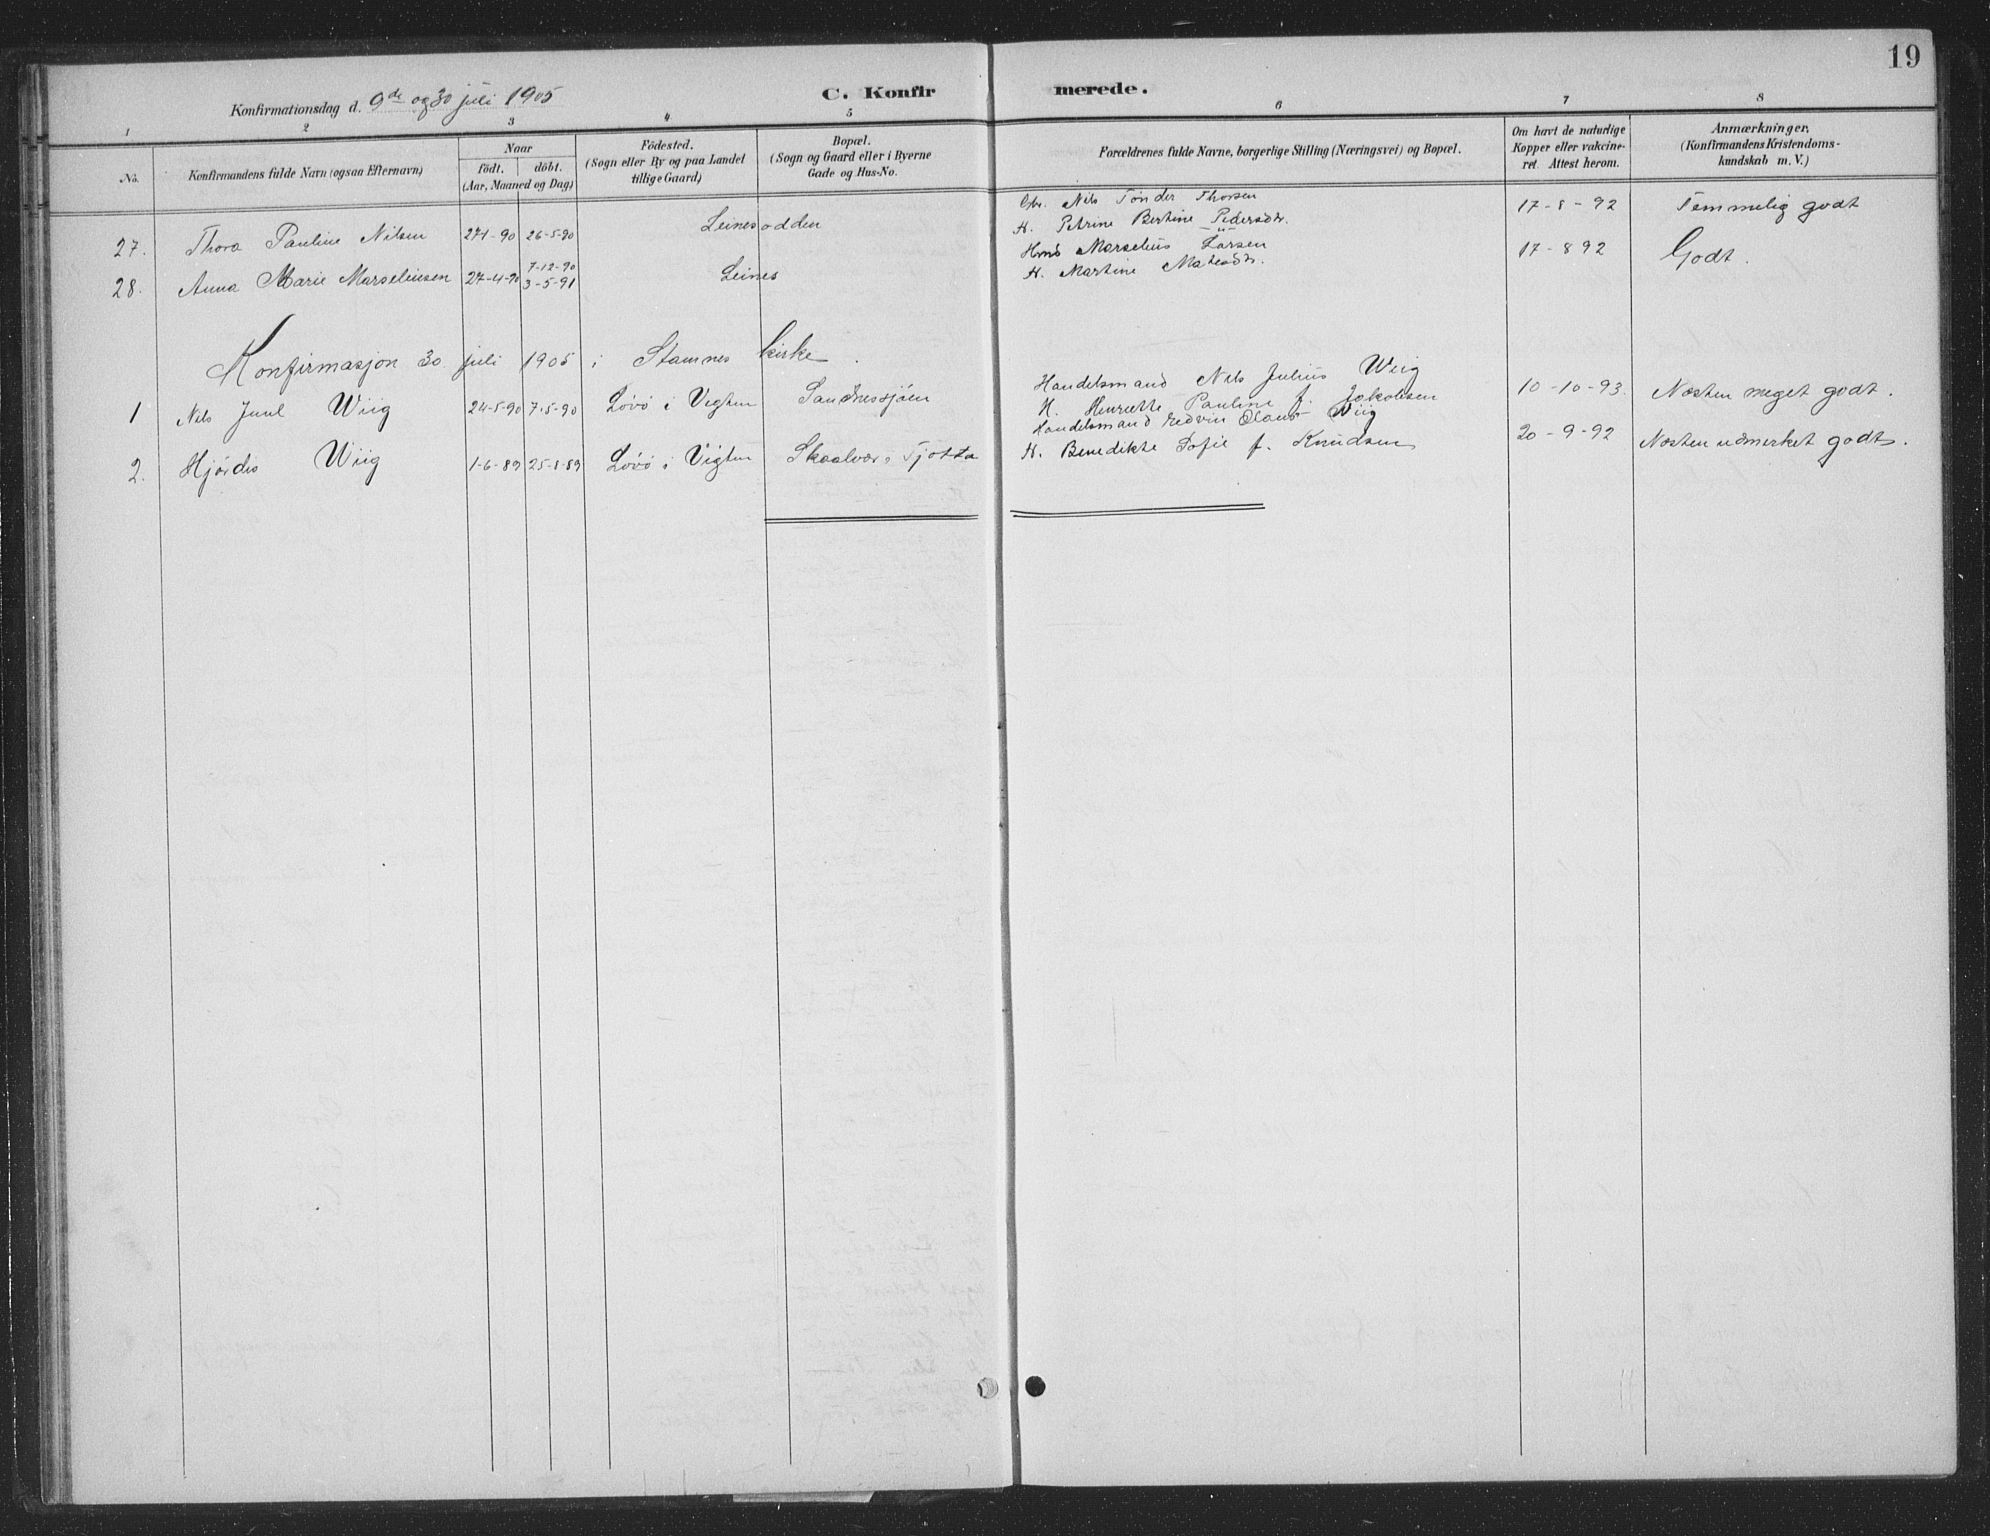 19
Konfirmationsdag d. 9de og 30 juli 1905
C. Konfirmerede.
1 2 3 4 5 6 7 8
No.
Konfirmandens fulde Navn (ogsaa Efternavn)
Naar
födt. döbt.
(Aar, Maaned og Dag)
Födested.
(Sogn eller By og paa Landet
tillige Gaard)
Bopæl.
(Sogn og Gaard eller i Byerne
Gade og Hus-No.
Forældrenes fulde Navne, borgerlige Stilling (Næringsvei) og Bopæl.
Om havt de naturlige
Kopper eller vakcine-
ret. Attest herom.
Anmærkninger.
(Konfirmandens Kristendoms-
kundskab m. V.)
27. Thora Pauline Nilsen 27-1-90 26-5-90 Leinesodden Nils Tönder Thorsen 17-8-92 Temmelig godt
H. Petrine Bertine Pedersdtr.
28. Anna Marie Marseliusen 27-4-90 7-12-90 3-5-91 Leines Hmd Marselius Larsen 17-8 92 Godt.
H. Martine
Konfirmasjon 30 juli 1905 i Stamnes kirke.
1 Nils Juul Wiig 24-5-90 7-5-90 Lövö i Vigten Sandnessjöen Handelsmand Nils Julius Wiig 10-10-93. Næsten meget godt.
H. Henriette Pauline f. Jakobsen
2. Hjördis Wiig 1-6-89 25-8-89 Lövö i Vigten Skaalvær i Tjötta Handelsmand Edvin Olaus Wiig 20-9-92 Næsten udmerket godt.
H. Benedikte Sofie f. Knudsen